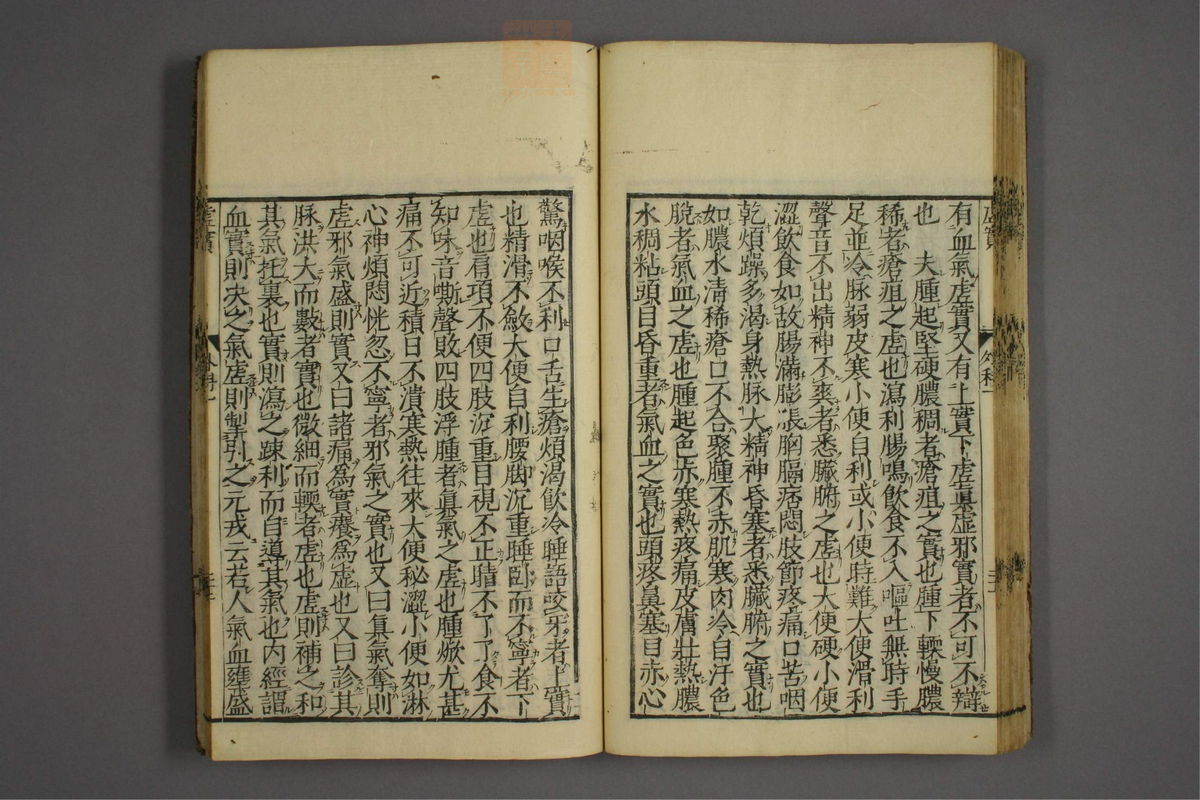 有血氣虛實又有上實下虛真虛邪實者不可不辯
也　夫腫起堅硬膿稠者瘡疽之實也腫下輭慢膿
稀者瘡疽之虛也瀉利腸鳴飲食不入嘔吐無時手
足並冷脉弱皮寒小便自利或小便時難大便滑利
聲音不出精神不爽者悉臟腑之虛也大便硬小便
澀飲食如故腸滿膨漲胸膈痞悶肢節疼痛口苦咽
乾煩躁多渴身熱脉大精神昏塞者悉臟腑之實也
如膿水淸稀瘡口不合聚腫不赤肌寒肉冷自汗色
脫者氣血之虛也腫起色赤寒熱疼痛皮膚壯熱膿
水稠粘頭目昏重者氣血之實也頭疼鼻塞目赤心
驚咽喉不利口舌生瘡煩渴飲冷睡語咬牙者上實
也精滑不斂大便自利腰脚沉重睡臥而不寧者下
虛也肩項不便四肢沉重目視不正睛不了了食不
知味音嘶聲敗四肢浮腫者眞氣之虛也腫焮尤甚
痛不可近積日不潰寒熱往來大便秘澀小便如淋
心神煩悶恍忽不寧者邪氣之實也又曰眞氣奪則
虛邪氣盛則實又曰諸痛爲實癢爲虛也又曰診其
脉洪大而數者實也微細而輭者虛也虛則補之和
其氣托裏也實則瀉之踈利而自導其氣也內經謂
血實則决之氣虛則掣引之元戎云若人氣血壅盛
虛實
外科一